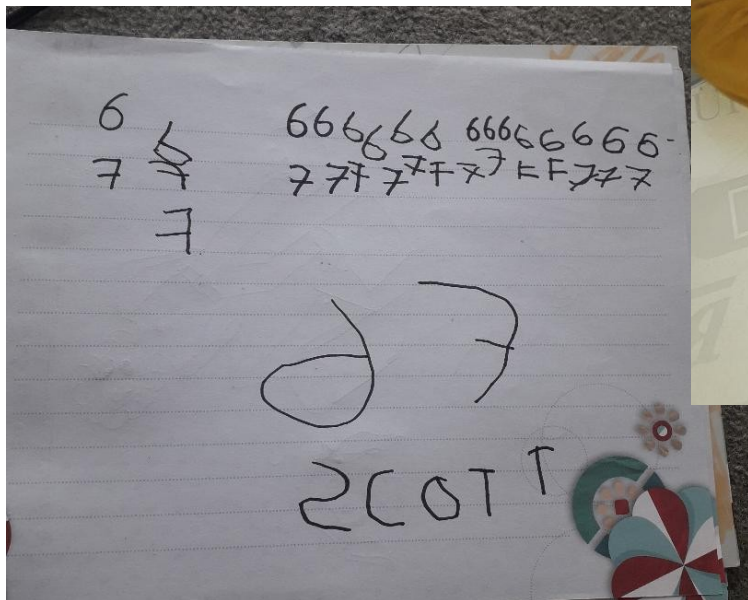 6 6 666666 66666666
7 7 777777 77777777
7
67
SCOTT